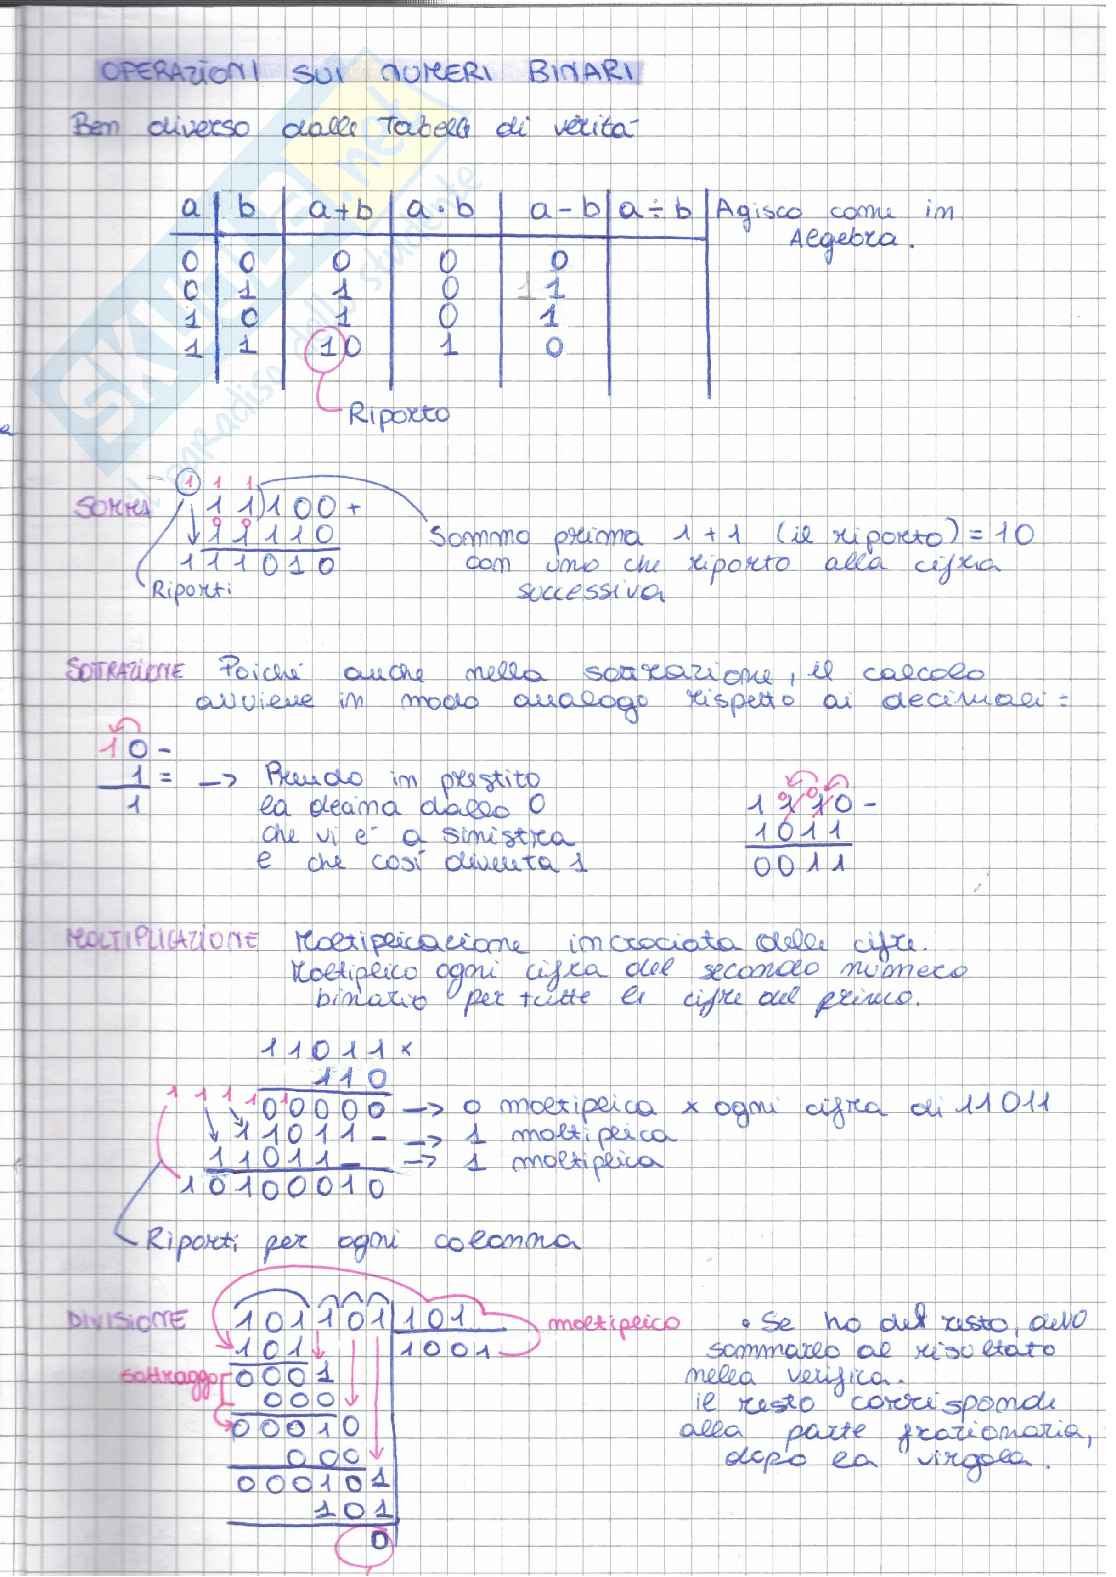 OPERAZIONI SUI NUMERI BINARI
Ben diverso dalle Tabelle di verità
a b a+b a·b a-b a÷b Agisco come in
Algebra.
0 0 0 0 0
0 1 1 0 11
1 0 1 0 1
1 1 10 1 0
Riporto
1 1 1
SOMMA 11100+
11110
111010
Riporti
Sommo prima 1+1 (il riporto)=10
con uno che riporto alla cifra
successiva
SOTTRAZIONE Poiché anche nella sottrazione, il calcolo
avviene in modo analogo rispetto ai decimali:
10-
1= → Prendo in prestito
1 la decina dallo 0
che vi è a sinistra
e che così diventa 1
1110-
1011
0011
MOLTIPLICAZIONE Moltiplicazione incrociata delle cifre.
Moltiplico ogni cifra del secondo numero
binario per tutte le cifre del primo.
11011×
110
1 1 1 1 1
00000 → 0 moltiplica × ogni cifra di 11011
11011- → 1 moltiplica
11011-- → 1 moltiplica
10100010
Riporti per ogni colonna
DIVISIONE 101101 101 moltiplico
101 1001
sottraggo 0001
000
00010
000
000101
101
0
• Se ho del resto, devo
sommarlo al risultato
nella verifica.
il resto corrisponde
alla parte frazionaria,
dopo la virgola.
SKUOLA.net
il paradiso dello studente